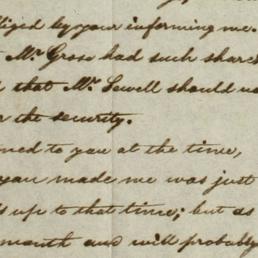 liged by your informing me.
Mr. Gross had such share
that Mr. Sewell should
the security.
ned to you at the time,
you made me was just
up to that time; but as
month and will probably